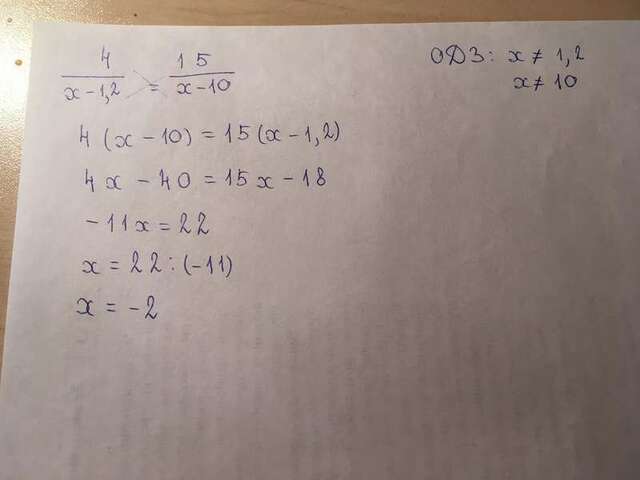 4/(x-1,2) = 15/(x-10)
4(x-10) = 15(x-1,2)
4x - 40 = 15x - 18
-11x = 22
x = 22 : (-11)
x = -2
ОДЗ: x ≠ 1,2
x ≠ 10